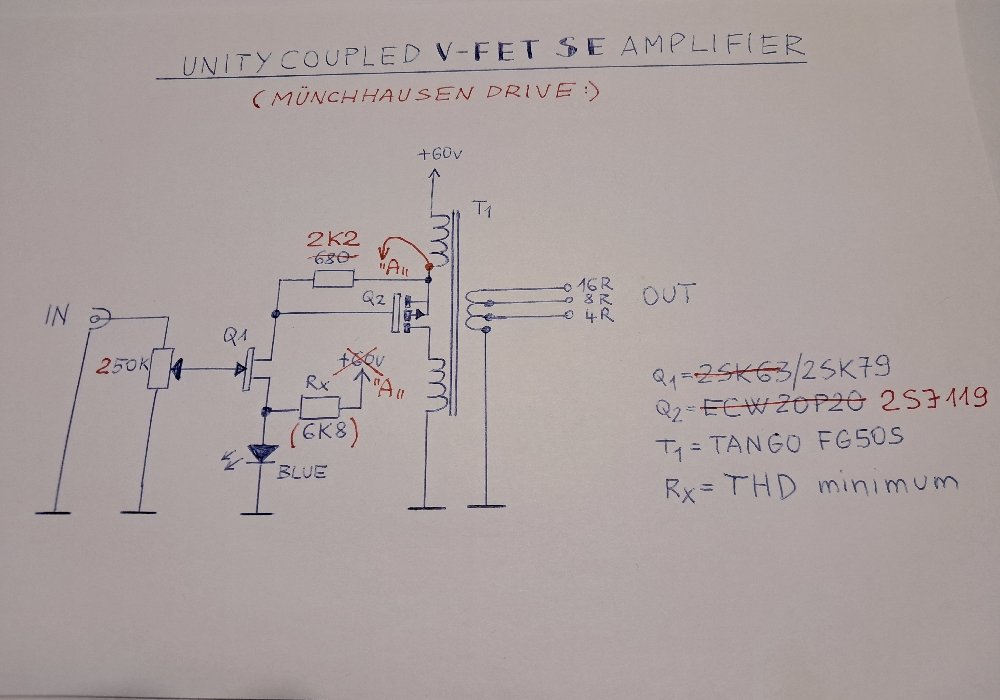 UNITY COUPLED V-FET SE AMPLIFIER
(MÜNCHHAUSEN DRIVE:)
+60V
T1
2K2
680
"A"
Q2
16R
8R
4R
OUT
IN
Q1
250K
+60V
"A"
Rx
(6K8)
BLUE
Q1=2SK63/2SK79
Q2=ECW20P20 2SJ119
T1=TANGO FG50S
Rx=THD minimum